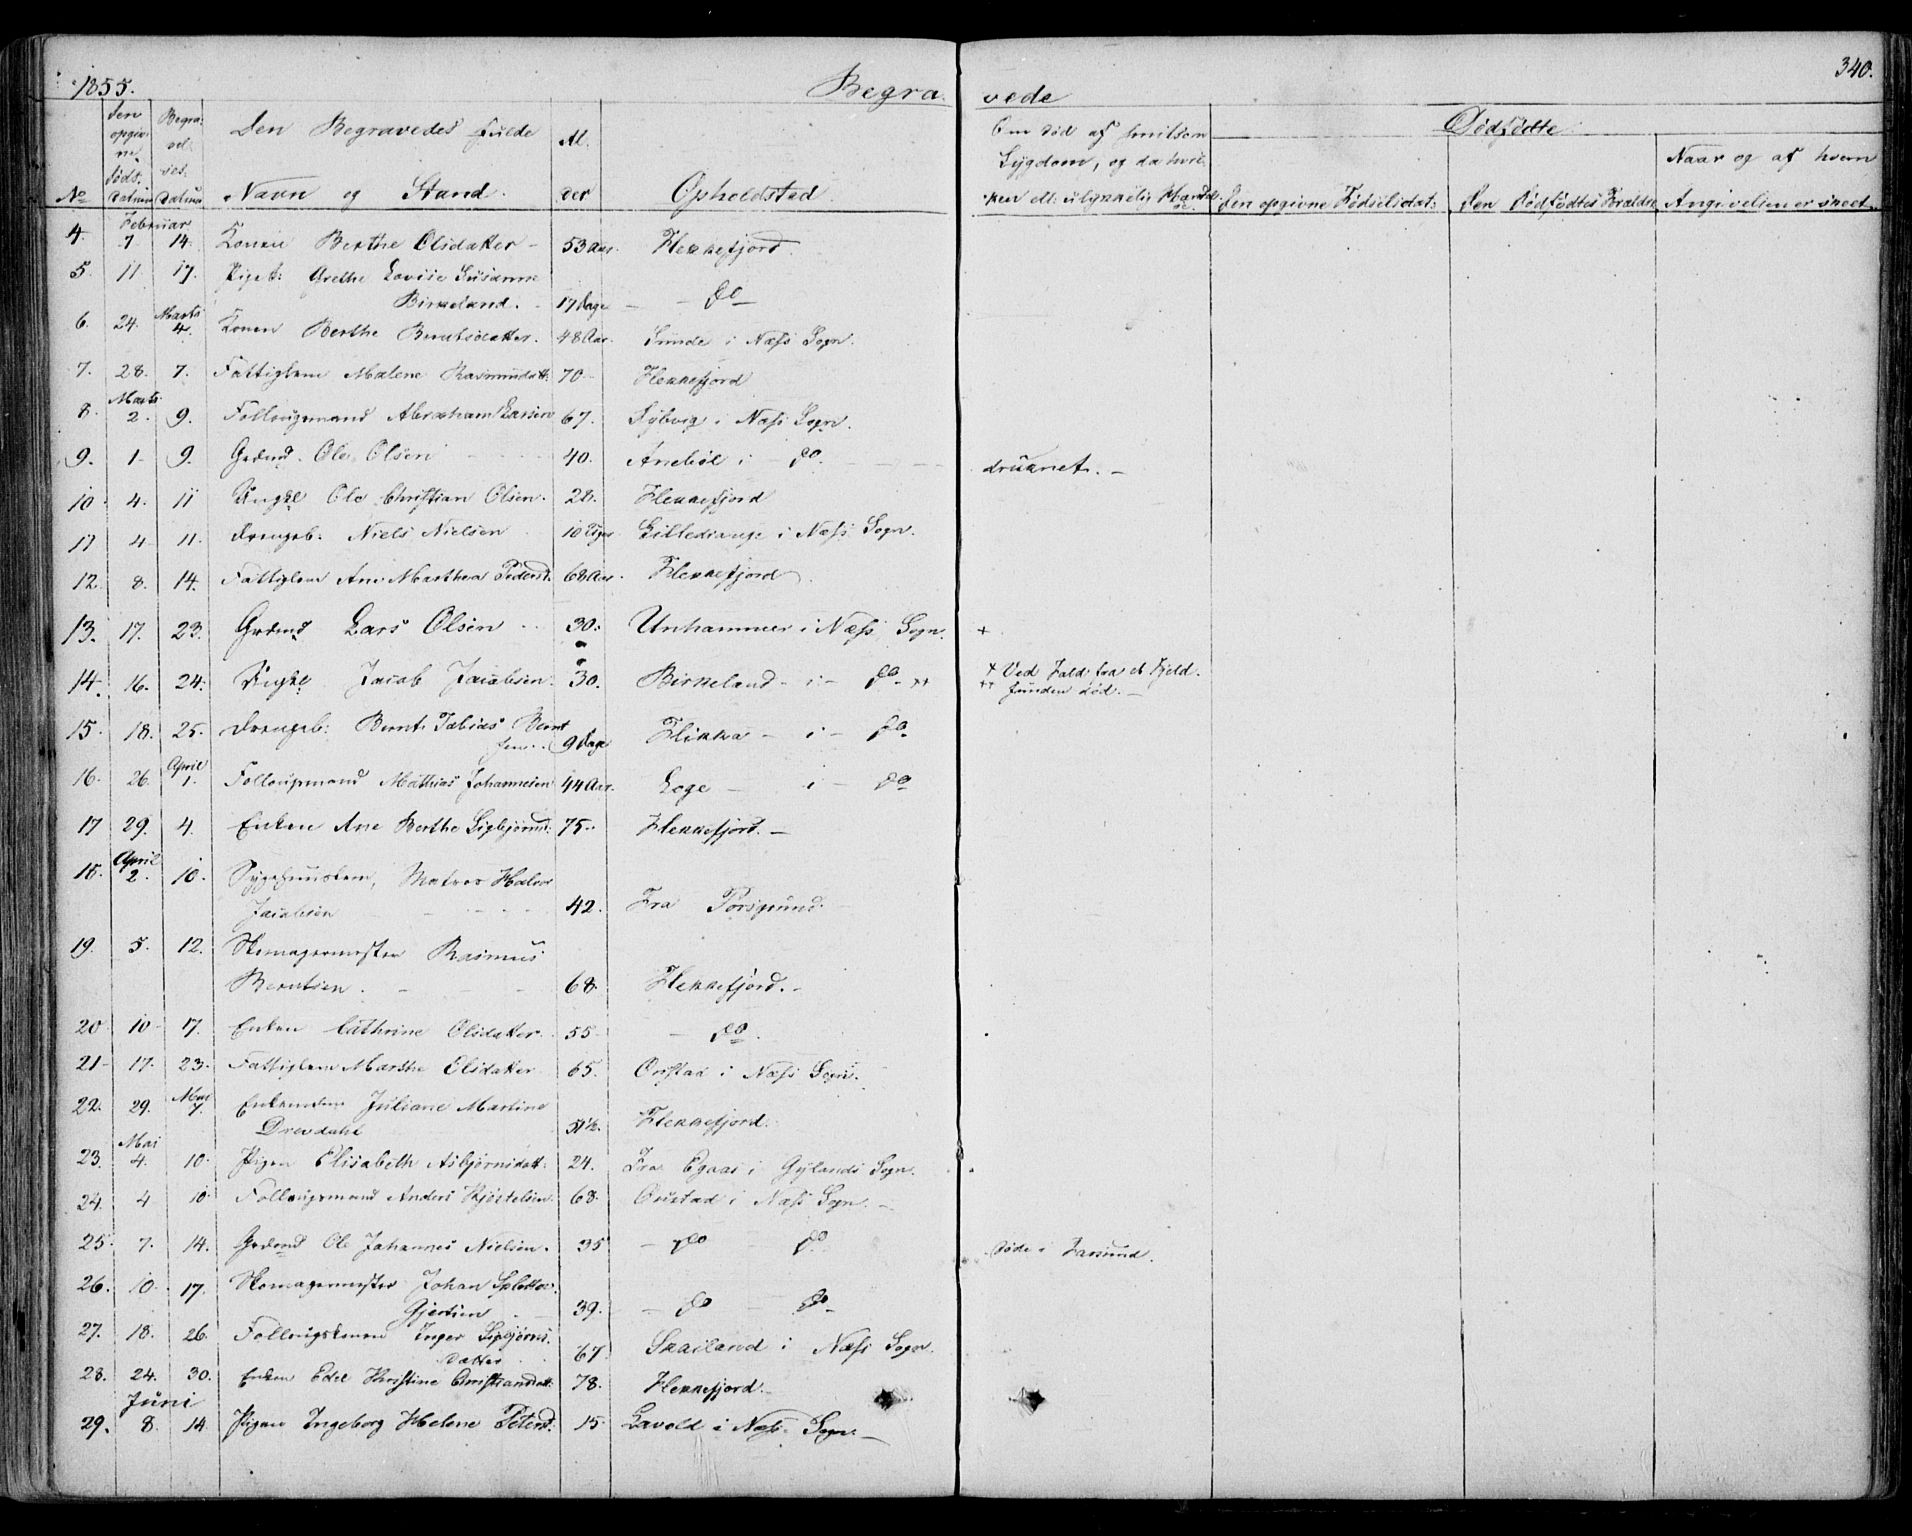 1855. Begravede 340.
Den opgivne Døds-Datum
Begravelses-Datum
Den Begravedes fulde Navn og Stand.
Alder
Opholdsted
Om død af smitsom Sygdom, og da hvilken ell: ulykkelig Handel.
Dødfødte
Den opgivne Fødselsdat:
Den Dødfødtes Forældre
Naar og af hvem Angivelsen er skeet.
No
Februar
4. 7 14. Konen Berthe Olsdatter - 53 Aar. Flekkefjord.
5. 11. 17. Piget: Grethe Lovise Susanne
Birkeland. - 17 Dage - do -
6. 24. Marts 4. Konen Berthe Berntsdatter. 48 Aar. Sunde i Næss Sogn.
7. 28. 7. Fattiglem Malene Rasmusdatt: 70 Flekkefjord
8. Marts 2. 9. Follougsmand Abraham Larsen 67. i Næss Sogn.
9. 1 9. Grdmd. Ole Olsen 40. Anebøl i do. druknet. -
10 4. 11 Ungkl Ole Christian Olsen. 28. Flekkefjord
11 4 11. Drengeb. Niels Nielsen 10 Uger i Næss Sogn.
12. 8. 14. Fattiglem Ane Marthea Pedersd. 68 Aar. Flekkefjord
13. 17. 23. Grdmd Lars Olsen 30. Unhammer i Næss Sogn. +
14. 16. 24. Ungkl Jacob Jacobsen. 30. Birkeland - i - do. ++
+ Ved Fald fra et Fjeld.
++ funden død. -
15. 18. 25. Drengeb: Bernt Tobias Bernt
sen. 9 Dage Flikka - i - do.
16. 26. April 1. Follougsmand Mathias Johannesen 44 Aar. Loge - i - do
17 29. 4. Enken Ane Berthe Sigbjørnsd: 75. Flekkefjord. -
18. April 2. 10. Sygehuuslem, Matros Halvor
Jacobsen 42. Fra Porsgrund.
19. 5. 12. Skomagermester Rasmus
Berntsen. 68. Flekkefjord. -
20 10 17. Enken Cathrine Olsdatter. 55 - do.
21 17. 23. Fattiglem Marthe Elisdatter 65. Øristad i Næss Sogn.
22. 29. Mai 7. Juliane Martine
Drevdahl 51½. Flekkefjord.
23. Mai 4. 10. Pigen Elisabeth Asbjørnsdatt: 24. Fra Egaas i Gylands Sogn.
24. 4 10 Follougsmand Anders Kjøstelsen 68. Øristad i Næss Sogn. -
25. 7. 14. Grdmd Ole Johannes Nielsen. 35 - do - do. døde i Farsund.
26. 10. 17. Skomagermester Johan
Gjertsen 39. - do - do -
27. 18. 26. Follougskonen Inger Sigbjørns
datter 67. Skailand i Næss Sogn.
28. 24. 30. Enken Edel Khristine Christiansdatt: 78. Flekkefjord. -
Juni
29. 8. 14 Pigen Ingeborg Helene Petersd: 15 Lavold i Næss Sogn. -